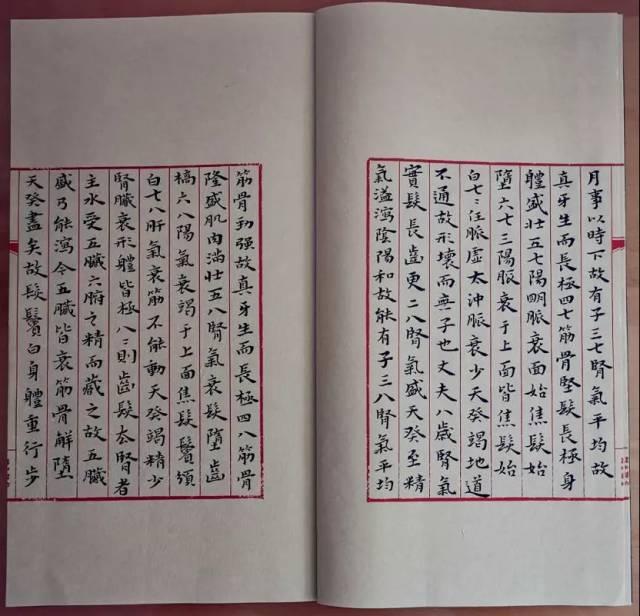 月事以時下故有子三七腎氣平均故
真牙生而長極四七筋骨堅髮長極身
體盛壯五七陽明脈衰面始焦髮始
墮六七三陽脈衰于上面皆焦髮始
白七〻任脈虛太沖脈衰少天癸竭地道
不通故形壞而無子也丈夫八歲腎氣
實髮長齒更二八腎氣盛天癸至精
氣溢瀉陰陽和故能有子三八腎氣平均
筋骨劲强故真牙生而長極四八筋骨
隆盛肌肉满壮五八腎氣衰髮墮齒
槁六八陽氣衰竭于上面焦髮鬢頒
白七八肝氣衰筋不能動天癸竭精少
腎臟衰形體皆極八〻則齒髮去腎者
主水受五臟六腑之精而藏之故五臟
盛乃能瀉今五臟皆衰筋骨解墮
天癸盡矣故髮鬢白身體重行步